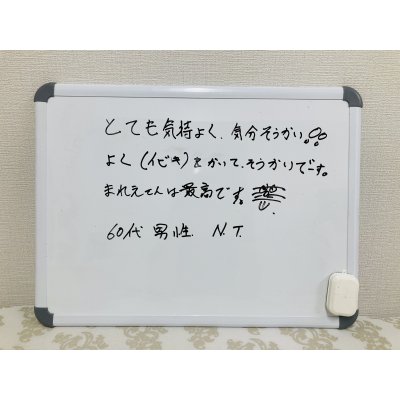 とても気持よく、気分そうかい。
よく(イビキ)をかいて、そうかいでーす。
まれえさんは最高です。
60代 男性 N.T.